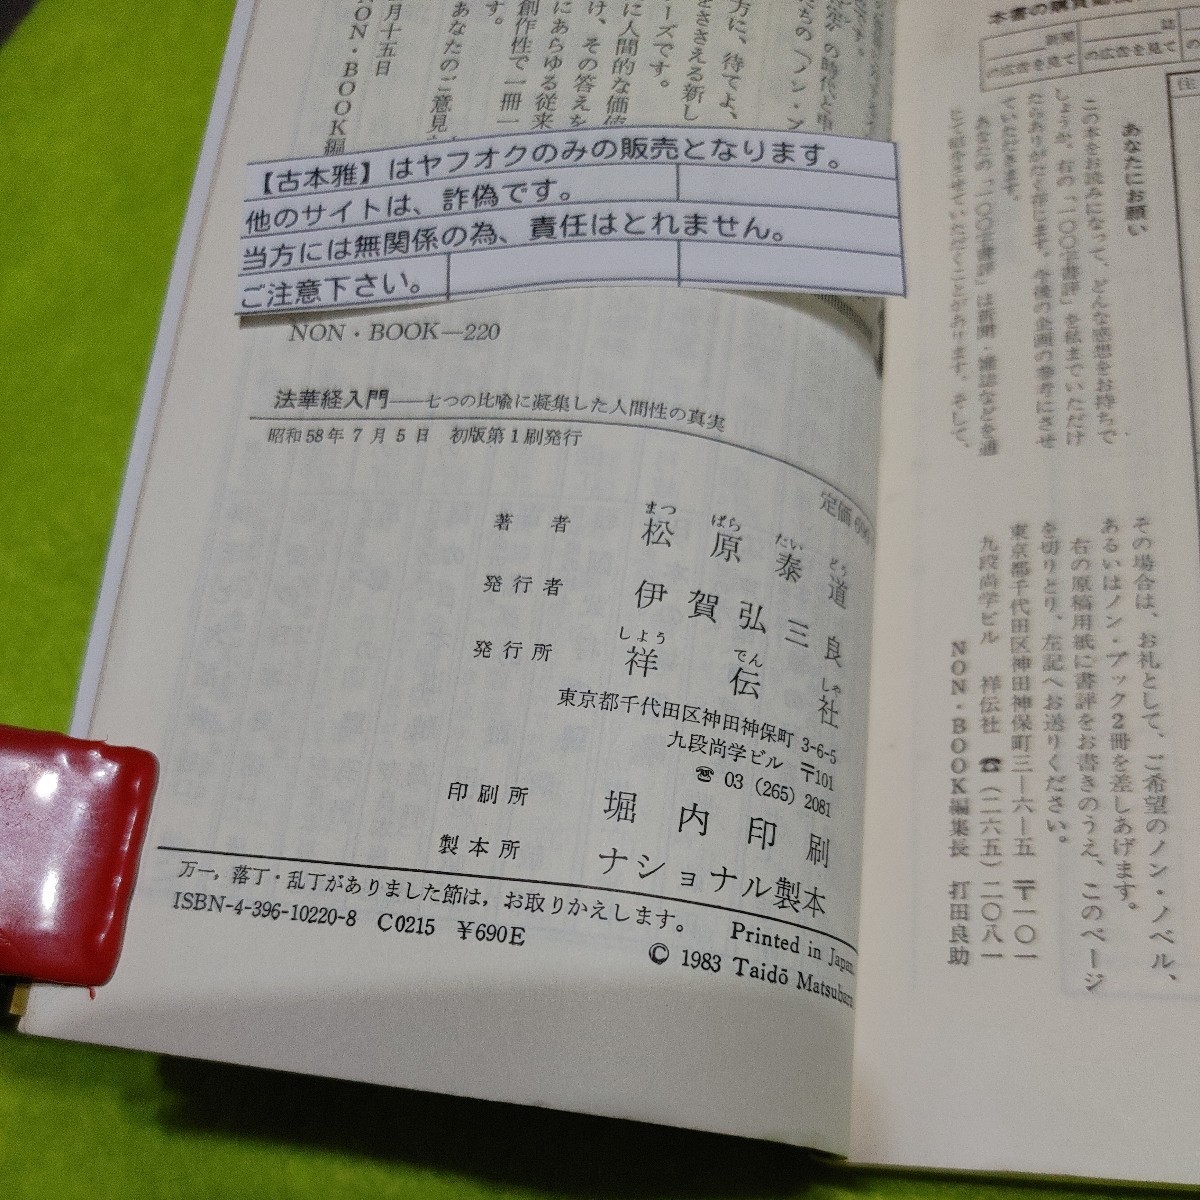 月十五日
NON・BOOK編
【古本雅】はヤフオクのみの販売となります。
他のサイトは、詐偽です。
当方には無関係の為、責任はとれません。
ご注意下さい。
NON・BOOK—220
法華経入門——七つの比喩に凝集した人間性の真実
昭和58年7月5日 初版第1刷発行
定価
著者 松原泰道
まつ ばら たい どう
発行者 伊賀弘三良
発行所 祥伝社
しよう でん しゃ
東京都千代田区神田神保町 3-6-5
九段尚学ビル 〒101
☎ 03 (265) 2081
印刷所 堀内印刷
製本所 ナショナル製本
万一，落丁・乱丁がありました節は，お取りかえします。
Printed in Japan.
ISBN-4-396-10220-8 C0215 ¥690E
© 1983 Taidō
の広告を見て
の広告を見て
あなたにお願い
この本をお読みになって、どんな感想をお持ちで
しょうか。右の「一〇〇字書評」を私までいただけ
たらありがたく存じます。今後の企画の参考にさせ
ていただきます。
あなたの「一〇〇字書評」は新聞・雑誌などを通
じて紹介させていただくことがあります。そして、
その場合は、お礼として、ご希望のノン・ノベル、
あるいはノン・ブック2冊を差しあげます。
右の原稿用紙に書評をお書きのうえ、このページ
を切りとり、左記へお送りください。
東京都千代田区神田神保町三—六—五 〒一〇一
九段尚学ビル 祥伝社 ☎(二六五)二〇八一
NON・BOOK編集長 打田良助